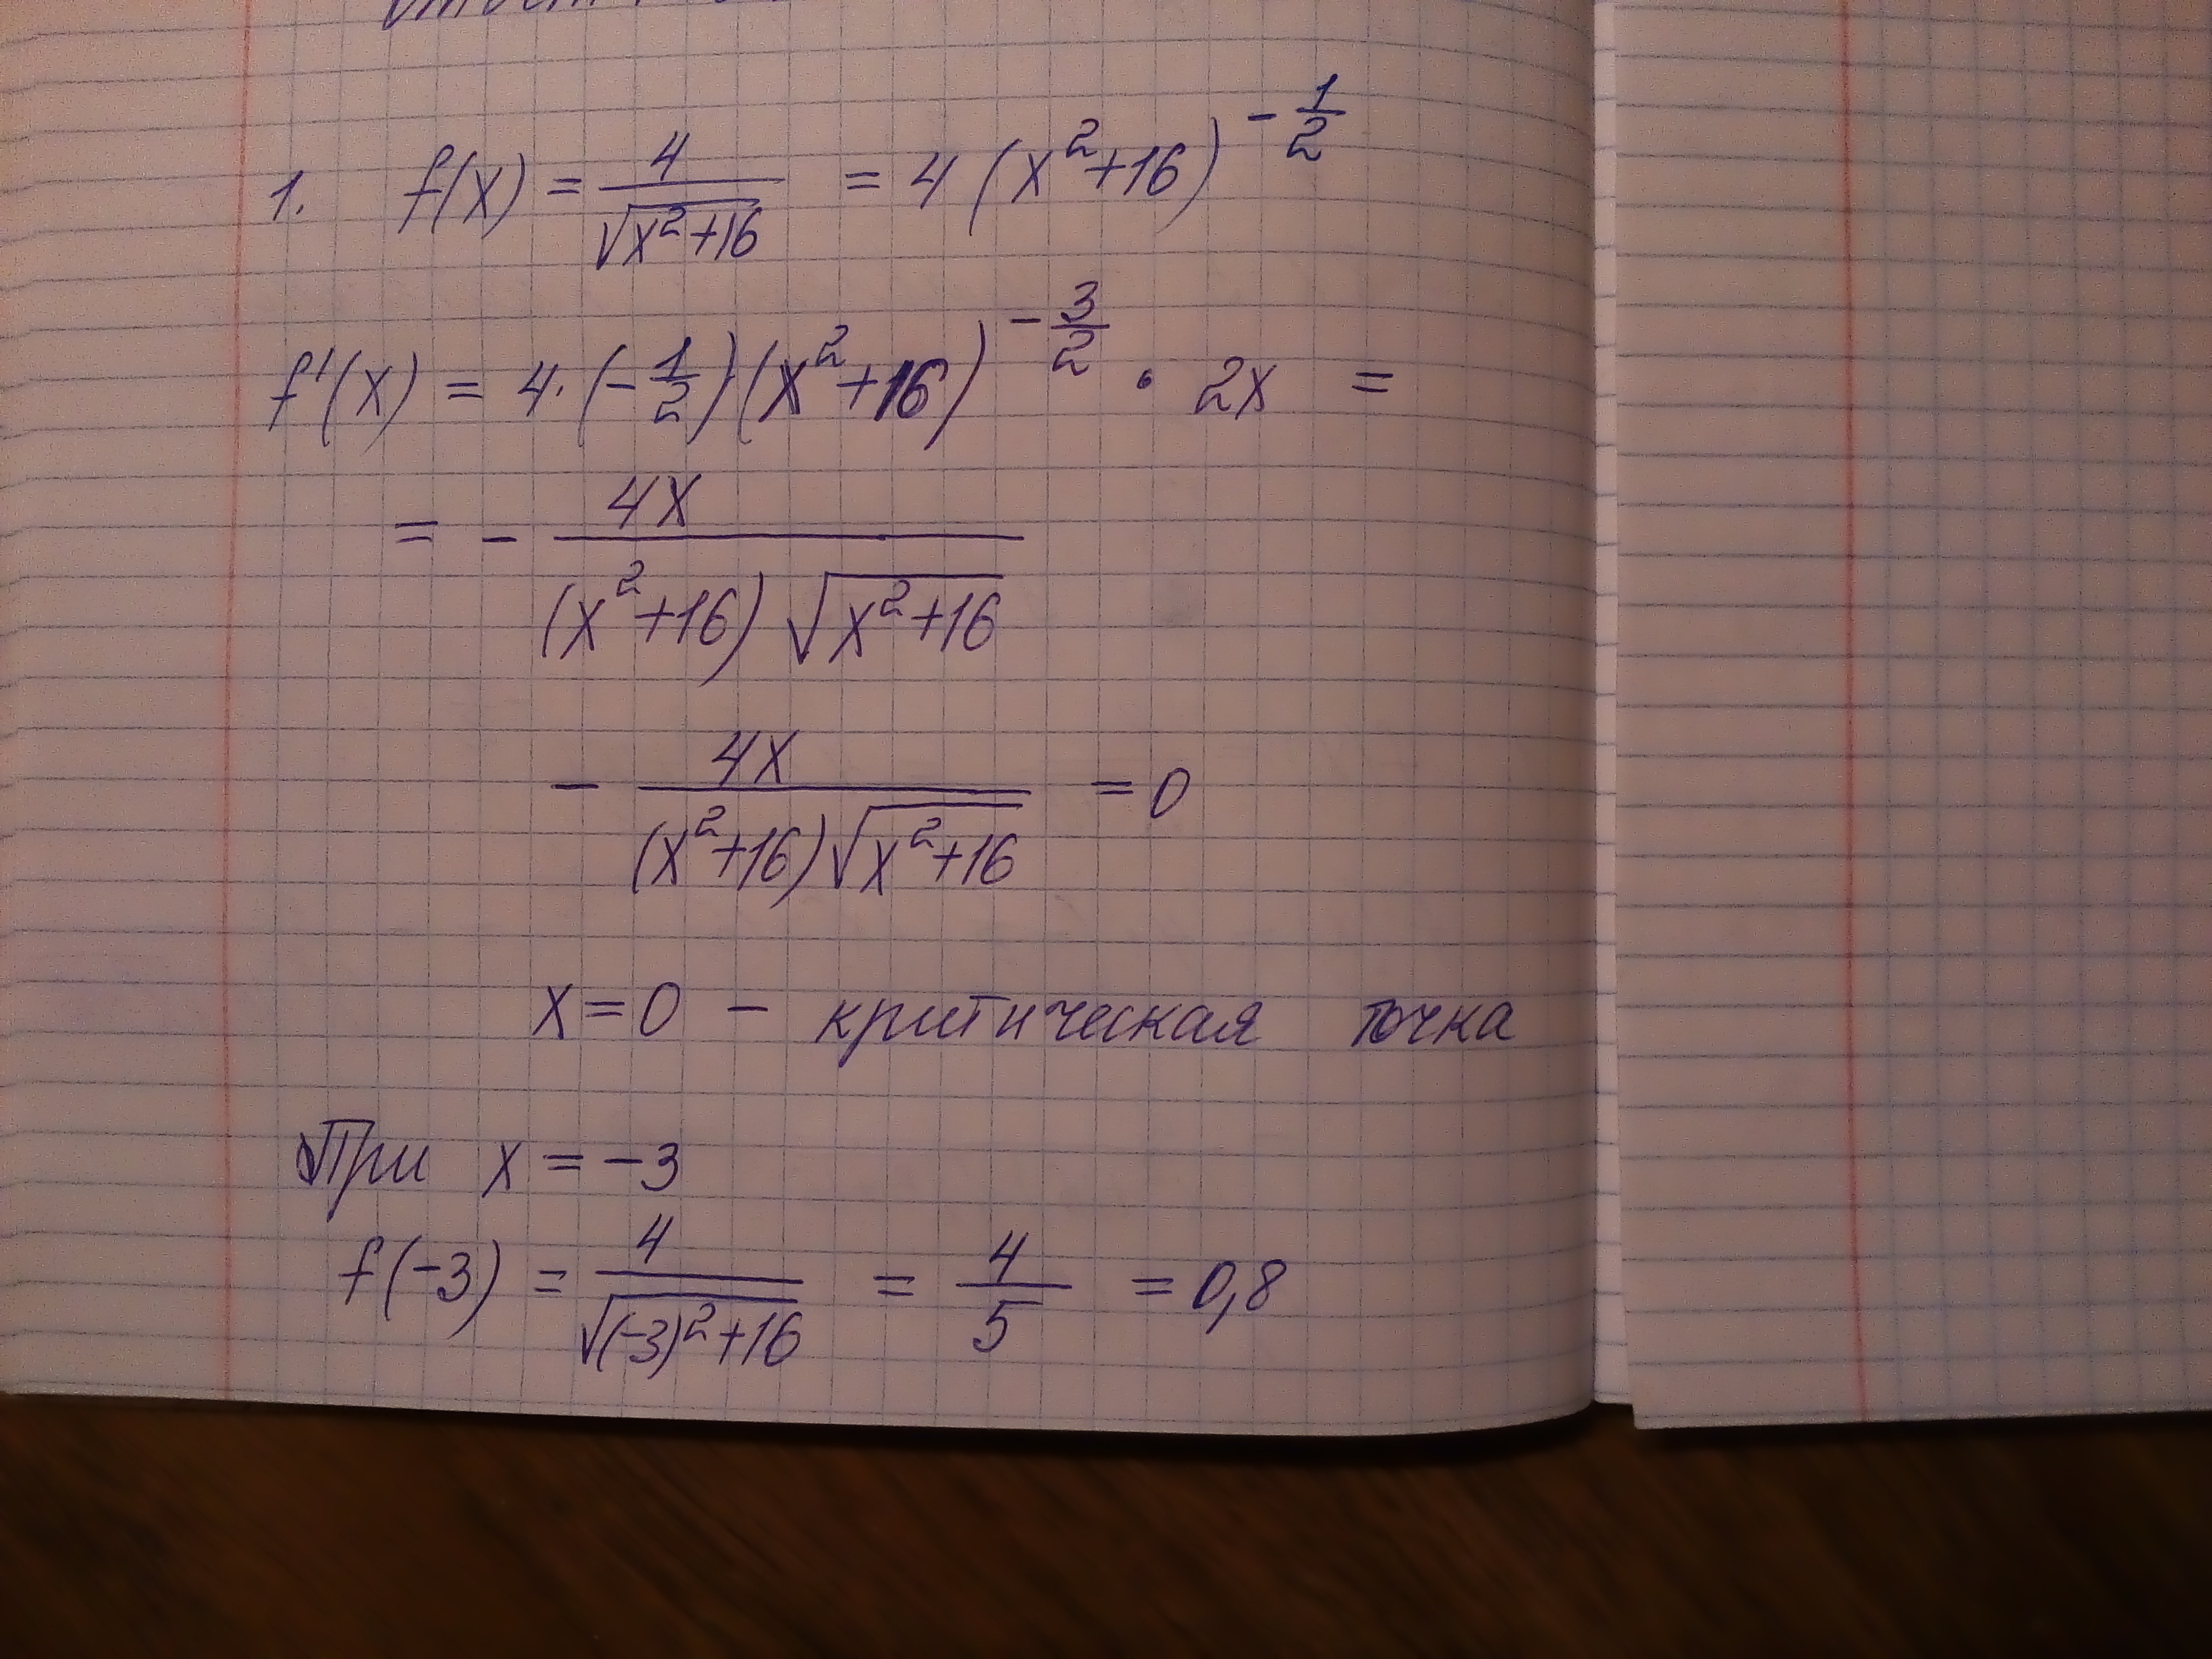 1. f(x) = 4/√(x²+16) = 4(x²+16)^(-1/2)
f'(x) = 4·(-1/2)(x²+16)^(-3/2) · 2x =
= - 4x/((x²+16)√(x²+16))
- 4x/((x²+16)√(x²+16)) = 0
x = 0 - критическая точка
При x = -3
f(-3) = 4/√((-3)²+16) = 4/5 = 0,8